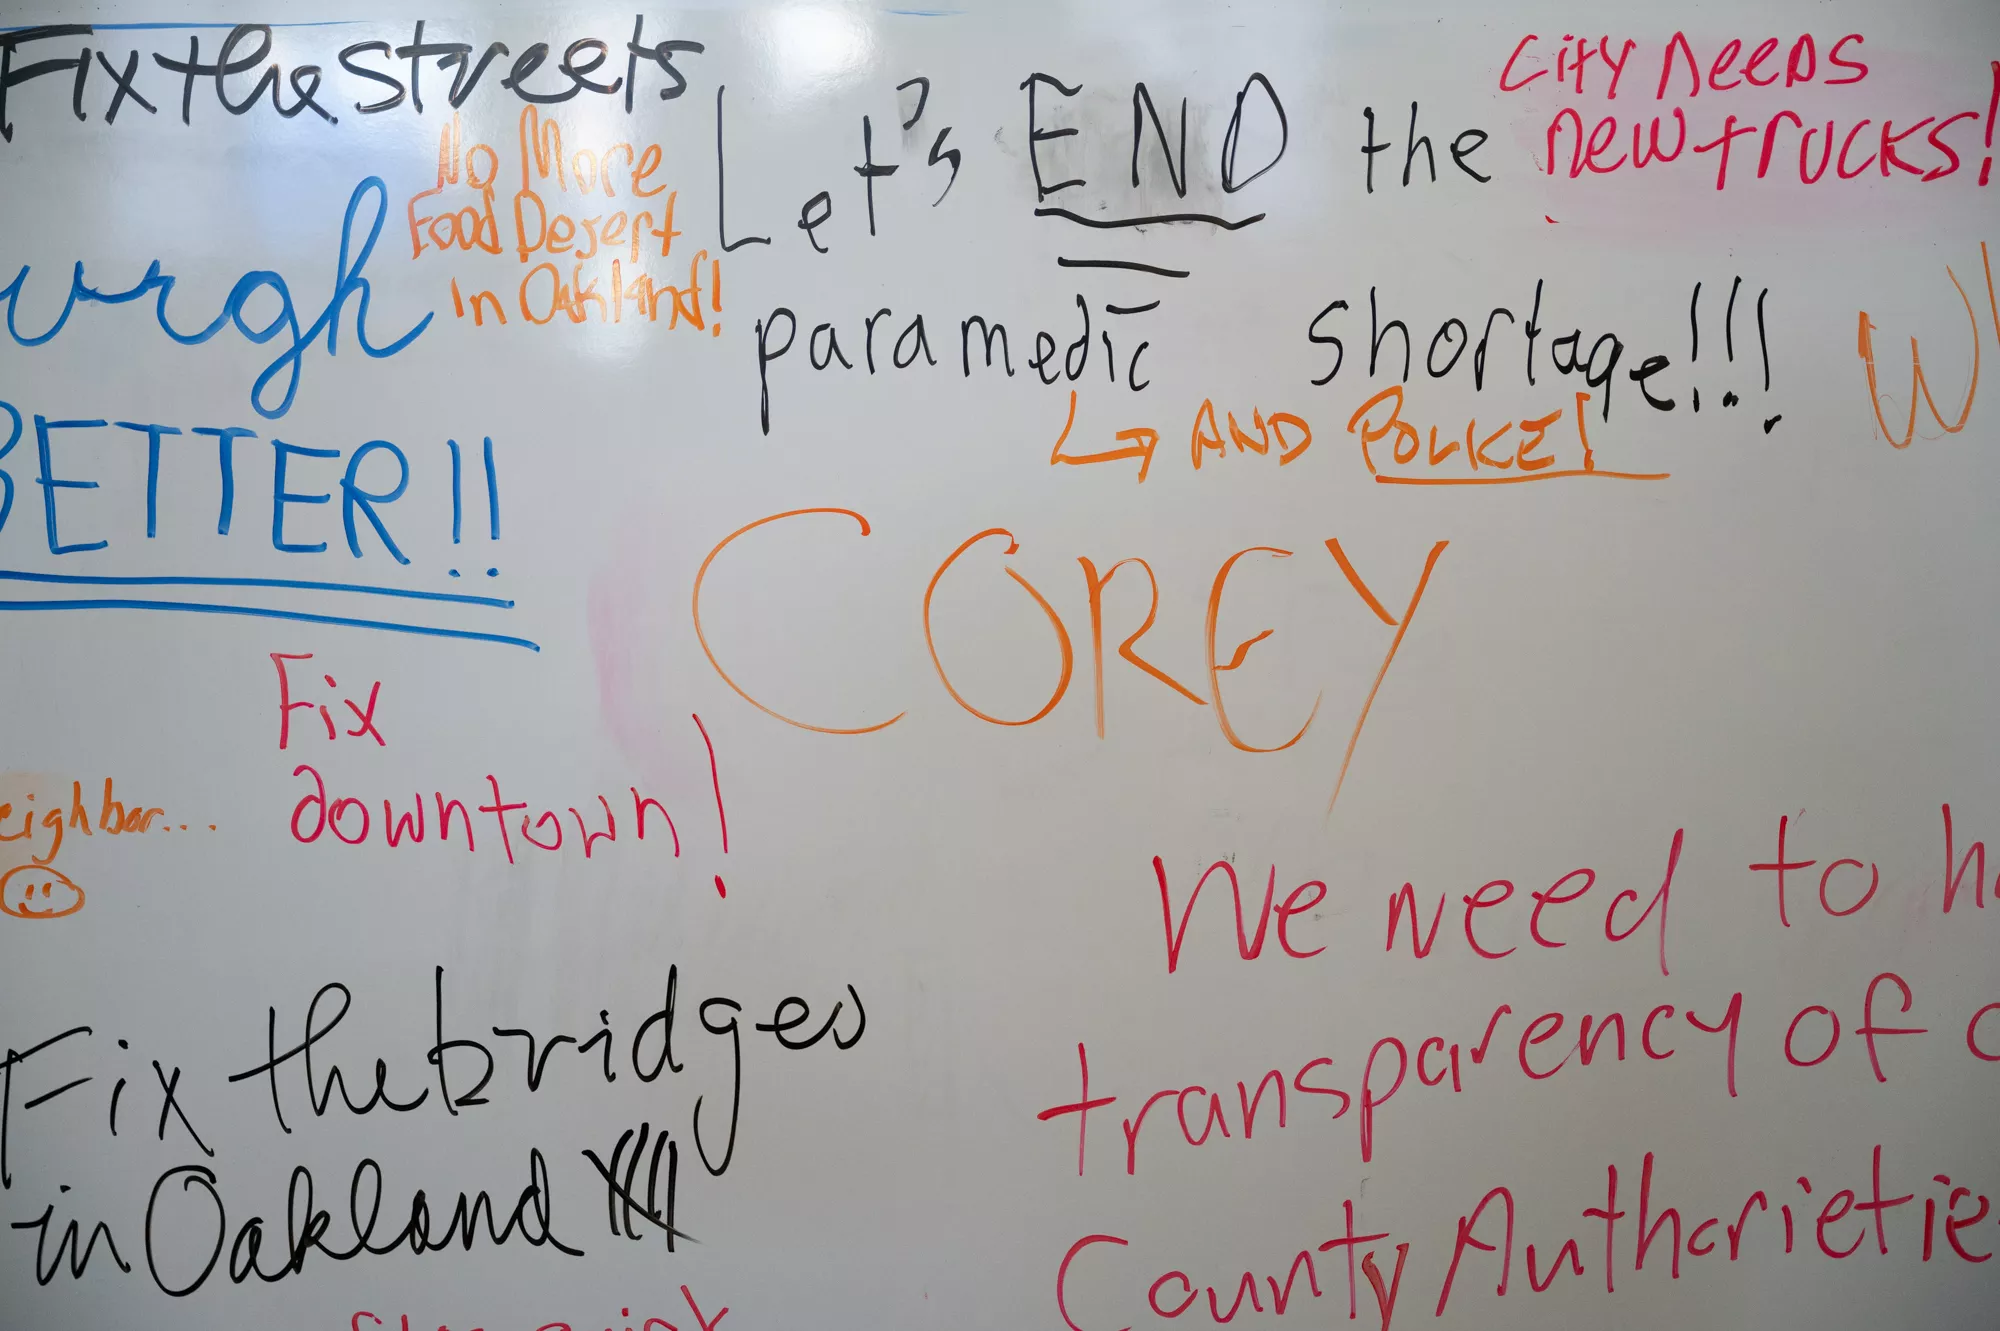 Fix the streets
No More
Food Desert
in Oakland!
urgh
BETTER!!
Let's END the
paramedic shortage!!!
AND POLICE!
CITY NEEDS
NEW TRUCKS!
COREY
Fix
downtown!
eighbor...
Fix the bridges
in Oakland
We need to h
transparency of
County Authorietie